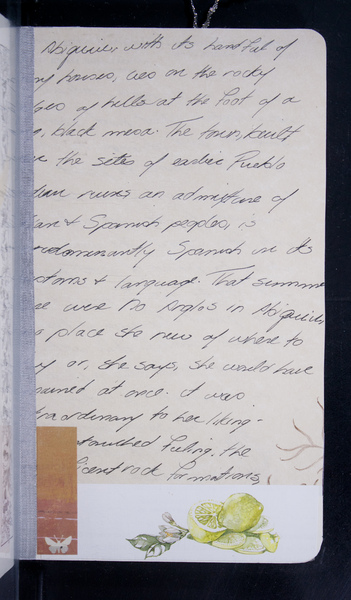 Abiquiu, with its handful of
houses, lies on the rocky
of hills at the foot of a
, black mesa. The town, built
the sites of earlier Pueblo
ruins an admixture of
& Spanish peoples, is
predominantly Spanish in its
customs & language. That summer
were no Anglos in Abiquiu,
place she new of where to
or, she says, she would have
at once. it was
traordinary to her liking -
touched feeling, the
rock formations,